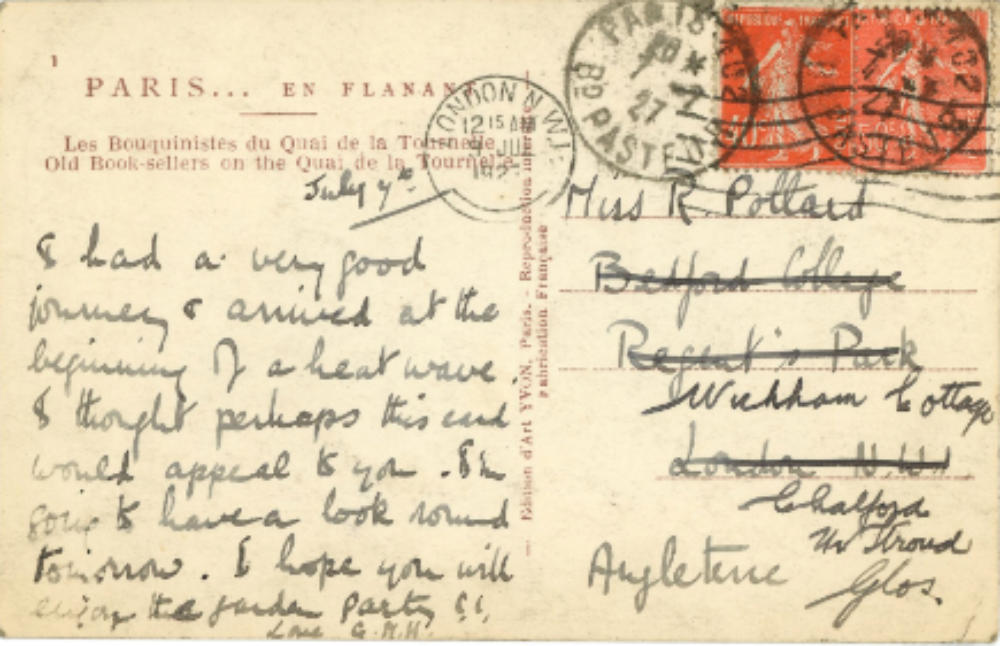 1
PARIS... EN FLANANT
Les Bouquinistes du Quai de la Tournelle
Old Book-sellers on the Quai de la Tournelle
July 7th
I had a very good
journey & arrived at the
beginning of a heat wave.
I thought perhaps this card
would appeal to you. I'm
going to have a look round
tomorrow. I hope you will
enjoy the garden party !!
Love G.M.H.
Edition d'Art YVON, Paris. - Reproduction interdite
Fabrication Française
LONDON N.W.1
12 15 AM
JUL
PARIS
BD PASTEUR
27
PARIS
PASTEUR
Miss R. Pollard
Bedford College
Regent's Park
Wickham Cottage
London N.W.1
Chalford
Nr Stroud
Angleterre
Glos.